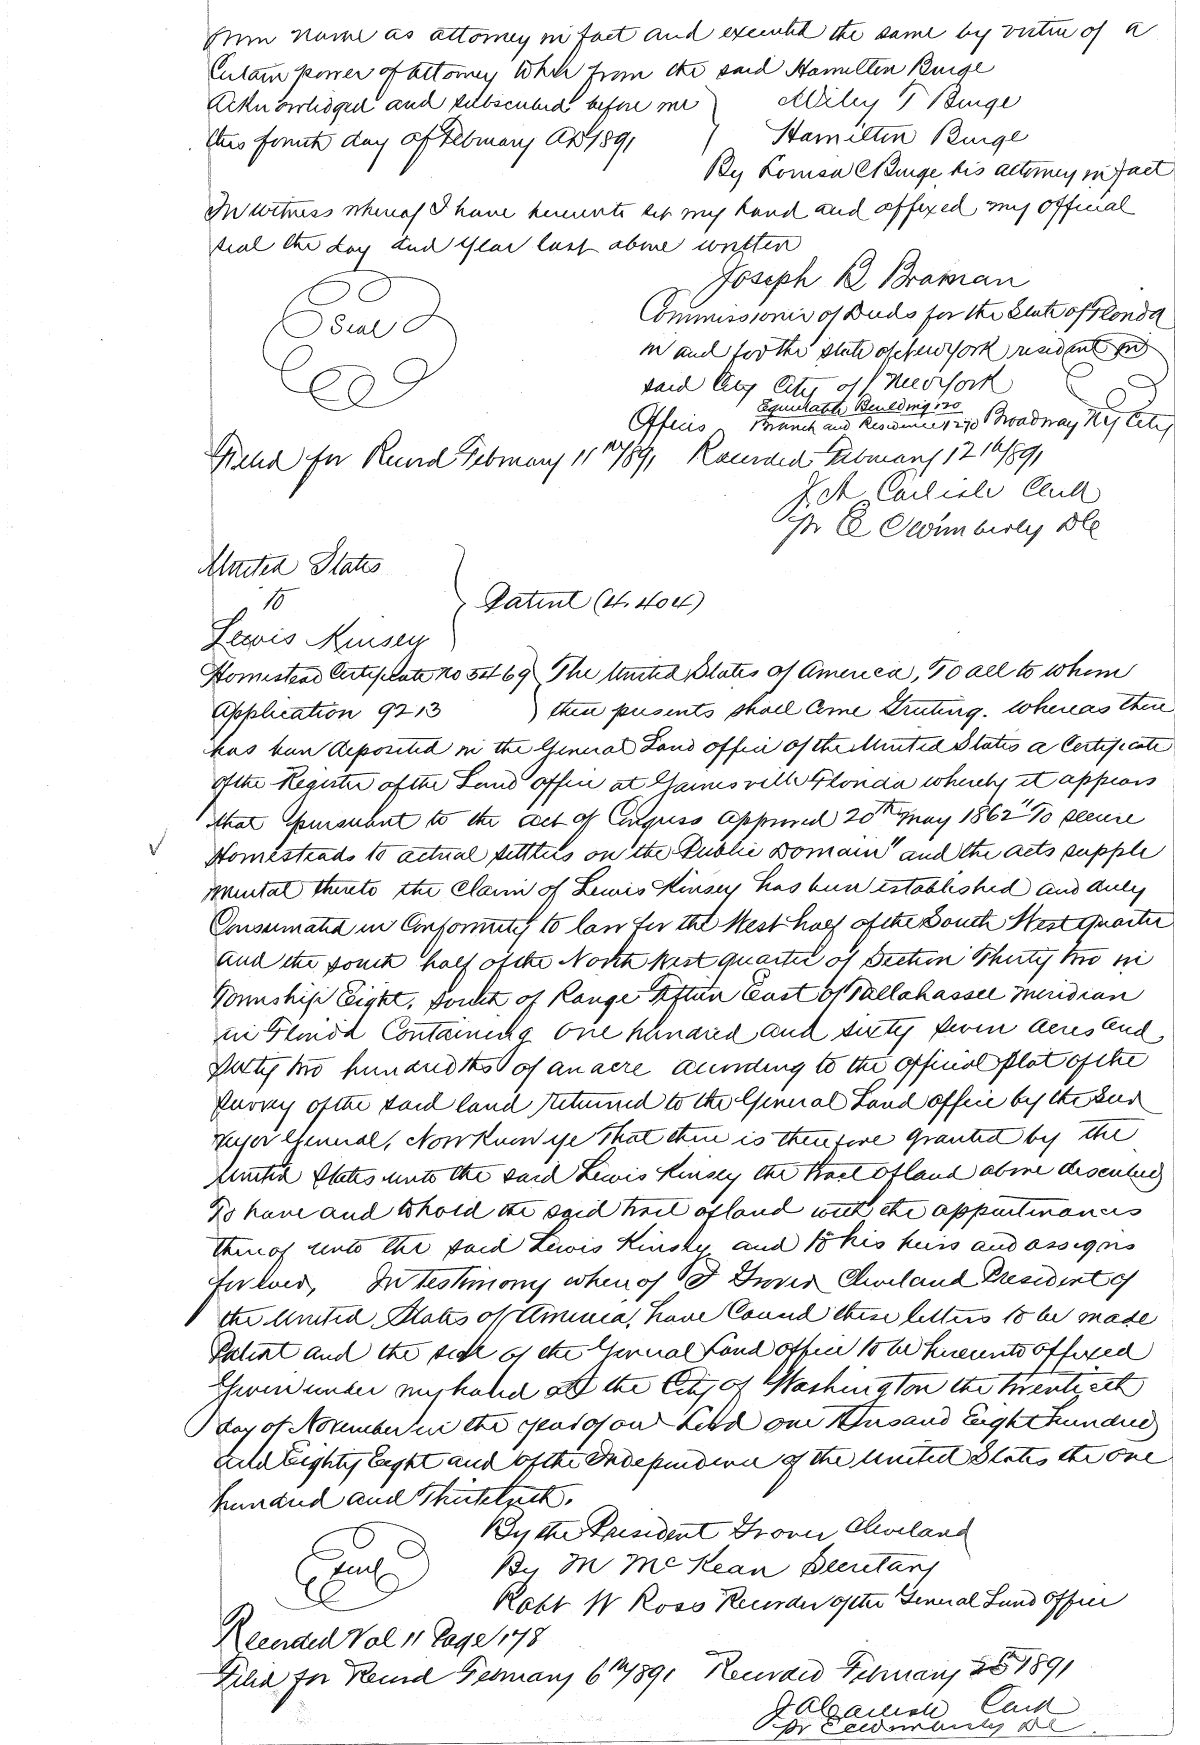 name as attorney in fact and executed the same by virtue of a
Certain power of attorney from the said Hamilton Burge
Acknowledged and subscribed before me
this fourth day of February AD 1891
Wiley T Burge
Hamilton Burge
By Louisa C Burge his attorney in fact
In witness whereof I have hereunto set my hand and affixed my official
seal the day and year last above written
Joseph B Braman
Seal
Commissioner of Deeds for the State of Florida
in and for the state of New York resident in
said City City of New York
Equitable Building 120
Offices Branch and Residence 1270 Broadway NY City
Filed for Record February 11th 1891 Recorded February 12th 1891
J A Carlisle Clerk
pr E C Wimberly DC
United States
to
Patent (4.404)
Lewis Kinsey
Homestead Certificate no 5469 The United States of America, To all to whom
Application 9213 these presents shall come Greeting. Whereas there
has been deposited in the General Land office of the United States a Certificate
of the Register of the Land office at Gainesville Florida whereby it appears
that pursuant to the act of Congress approved 20th May 1862 "To secure
Homesteads to actual settlers on the Public Domain" and the acts supple
mental thereto the claim of Lewis Kinsey has been established and duly
Consumated in Conformity to law for the West half of the South West quarter
and the south half of the North West quarter of Section Thirty two in
Township Eight, South of Range Fifteen East of Tallahassee Meridian
in Florida Containing one hundred and sixty seven acres and
sixty two hundredths of an acre according to the official Plat of the
Survey of the said land returned to the General Land office by the Sur
veyor General, Now Know ye That there is therefore granted by the
United States unto the said Lewis Kinsey the tract of land above described
To have and to hold the said tract of land with the appurtenances
thereof unto the said Lewis Kinsey and to his heirs and assigns
forever, In testimony whereof I Grover Cleveland President of
the United States of America, have Caused these letters to be made
Patent and the seal of the General Land office to be hereunto affixed
Given under my hand at the City of Washington the twentieth
day of November in the year of our Lord one thousand Eight hundred
and Eighty Eight and of the Independence of the United States the one
hundred and Thirteenth.
By the President Grover Cleveland
Seal
By M McKean Secretary
Robt W Ross Recorder of the General Land Office
Recorded Vol 11 Page 178
Filed for Record February 6th 1891 Recorded February 25 1891
J A Carlisle Clerk
pr E C Wimberly DC